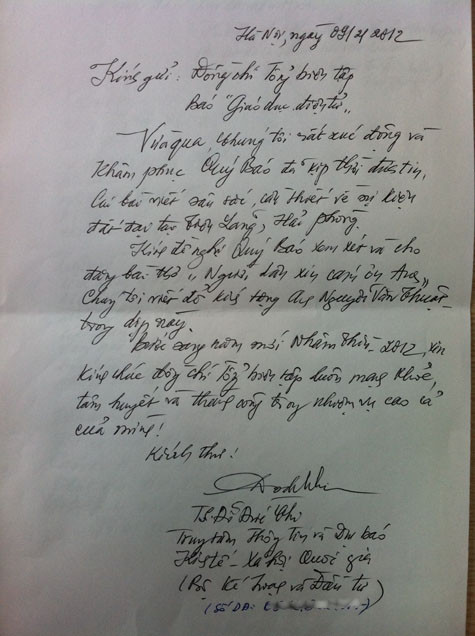 Hà Nội, ngày 09/2/2012
Kính gửi: Đồng chí Tổng biên tập
Báo "Giáo dục điện tử"
Vừa qua, chúng tôi rất xúc động và
khâm phục Quý Báo đã kịp thời đưa tin,
các bài viết sâu sắc, cần thiết về sự kiện
đất đai tại Tiên Lãng, Hải Phòng.
Kính đề nghị Quý Báo xem xét và cho
đăng bài thơ "Người dân xin cảm ơn Anh"
chúng tôi viết để kính tặng Anh Nguyễn Văn Thuật
trong dịp này.
Bước sang năm mới Nhâm Thìn - 2012, xin
kính chúc đồng chí Tổng biên tập luôn mạnh khỏe,
tâm huyết và thành công trong nhiệm vụ cao cả
của mình!
Kính thư!
TS. Đỗ Đức
Trung tâm Thông tin và Dự báo
Kinh tế - Xã hội Quốc gia
(Bộ Kế hoạch và Đầu tư)
(Số DĐ: